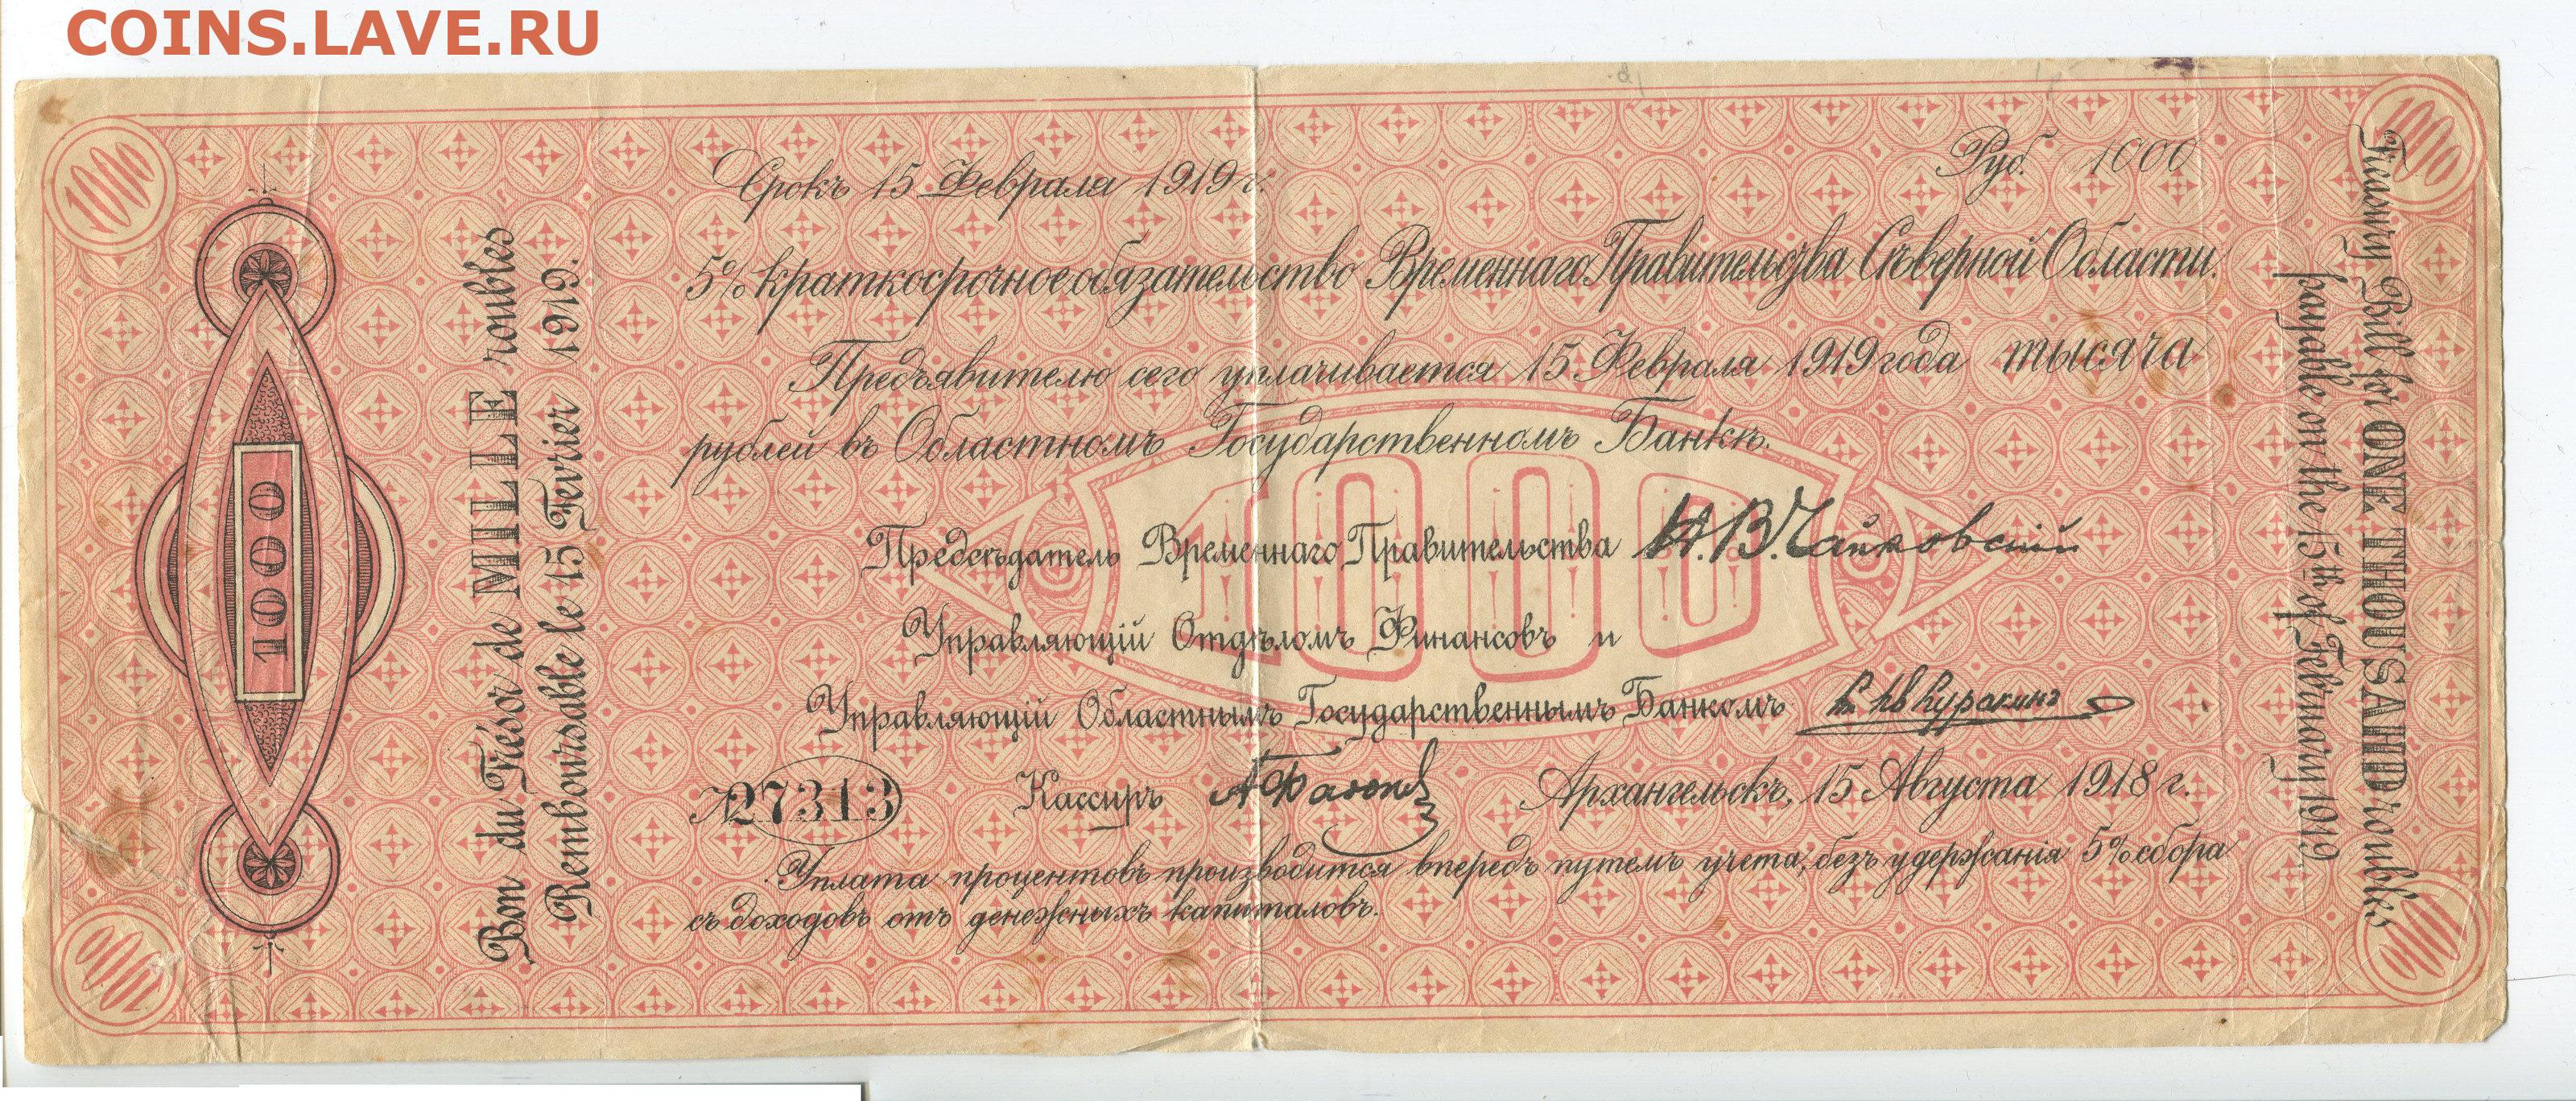 COINS.LAVE.RU
1000
1000
Срокъ 15 Февраля 1919 г.
Руб. 1000
5% краткосрочное обязательство Временнаго Правительства Сѣверной Области.
Предъявителю сего уплачивается 15 Февраля 1919 года тысяча
рублей въ Областномъ Государственномъ Банкѣ.
1000
Предсѣдатель Временнаго Правительства Н.В.Чайковскій
Управляющій Отдѣломъ Финансовъ и
Управляющій Областнымъ Государственнымъ Банкомъ Куракинъ
№ 27313 Кассиръ Архангельскъ, 15 Августа 1918 г.
Уплата процентовъ производится впередъ путемъ учета, безъ удержанія 5% сбора
съ доходовъ отъ денежныхъ капиталовъ.
1000
Bon du Trésor de MILLE roubles
Remboursable le 15 Fevrier 1919.
Treasury Bill for ONE THOUSAND roubles
payable on the 15th of February 1919
1000
1000